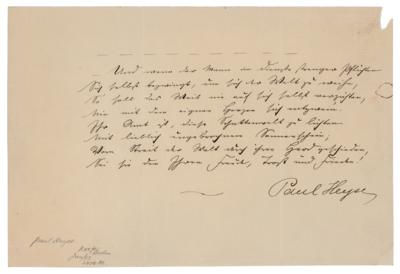 Und wenn der Mann im Dienste strenger Pflichten
Sich selbst bezwingt, um sich der Welt zu weihn,
So soll das Weib nie auf sich selbst verzichten,
Nie mit dem eignen Herzen sich entzwein.
Ihr Amt ist, diese Schattenwelt zu lichten
Mit lieblich ungebrochnem Sonnenschein;
Vom Streit der Welt durch ihren Herd geschieden,
Sei sie den Ihren Freude, Trost und Frieden!
Paul Heyse
Paul Heyse